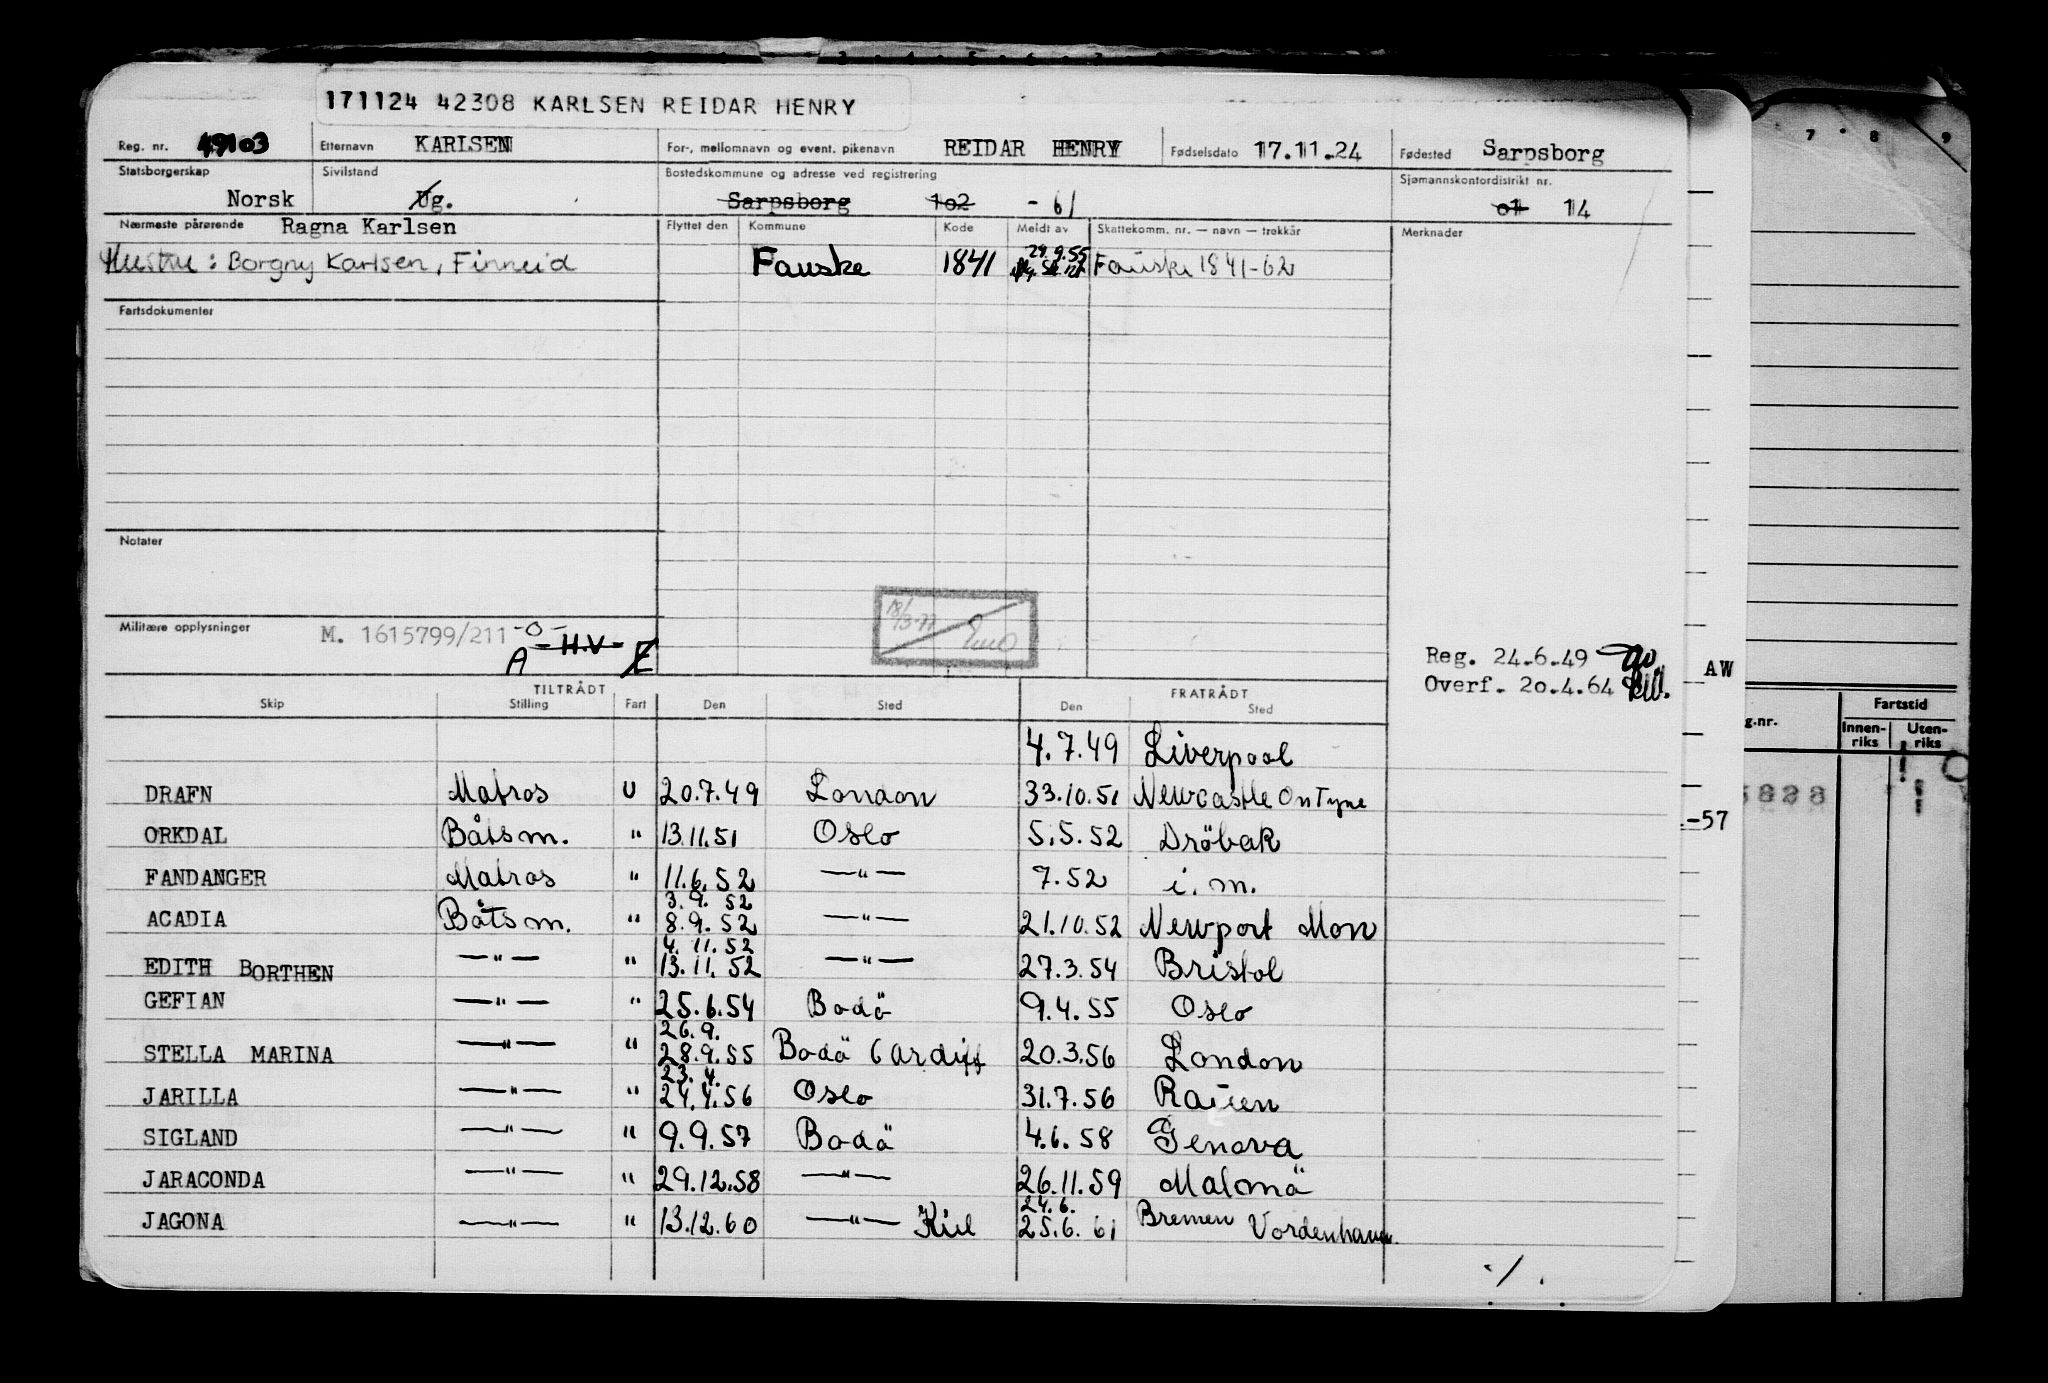 171124 42308 KARLSEN REIDAR HENRY
Reg. nr. 49103 Etternavn KARLSEN For-, mellomnavn og event. pikenavn REIDAR HENRY Fødselsdato 17.11.24 Fødested Sarpsborg
Statsborgerskap Norsk Sivilstand Ug. Bostedskommune og adresse ved registrering Sarpsborg 102 - 61 Sjømannskontordistrikt nr. 01 14
Nærmeste pårørende Ragna Karlsen Flyttet den Kommune Kode Meldt av Skattekomm. nr. — navn — trekkår Merknader
Hustru: Borgny Karlsen, Finneid Fauske 1841 29.9.55 Fauske 1841-62
Fartsdokumenter
Notater
18/3-77
Militære opplysninger M. 1615799/211 -0-
A -H.V- E
Reg. 24.6.49
Overf. 20.4.64
AW
TILTRÅDT FRATRÅDT
Skip Stilling Fart Den Sted Den Sted
4.7.49 Liverpool
DRAFN Matros U 20.7.49 London 33.10.51 Newcastle On Tyne
ORKDAL Båtsm. " 13.11.51 Oslo 5.5.52 Dröbak
FANDANGER Matros " 11.6.52 —"— 7.52 i. m.
3.9. 52
ACADIA Båtsm. " 8.9.52 —"— 21.10.52 Newport Mon
4. 11.52
EDITH BORTHEN —"— " 13.11.52 —"— 27.3.54 Bristol
GEFIAN —"— " 25.6.54 Bodö 9.4.55 Oslo
26.9.
STELLA MARINA —"— " 28.9.55 Bodö Cardiff 20.3.56 London
23.4.
JARILLA —"— " 24.4.56 Oslo 31.7.56
SIGLAND —"— " 9.9.57 Bodö 4.6.58 Genova
JARACONDA —"— " 29.12.58 —"— 26.11.59 Malmö
24.6.
JAGONA —"— " 13.12.60 —"— Kiel 25.6.61 Bremen Vordenhamn.
./.
-57
7 8 9
g.nr. Fartstid
Innen-riks Uten-riks